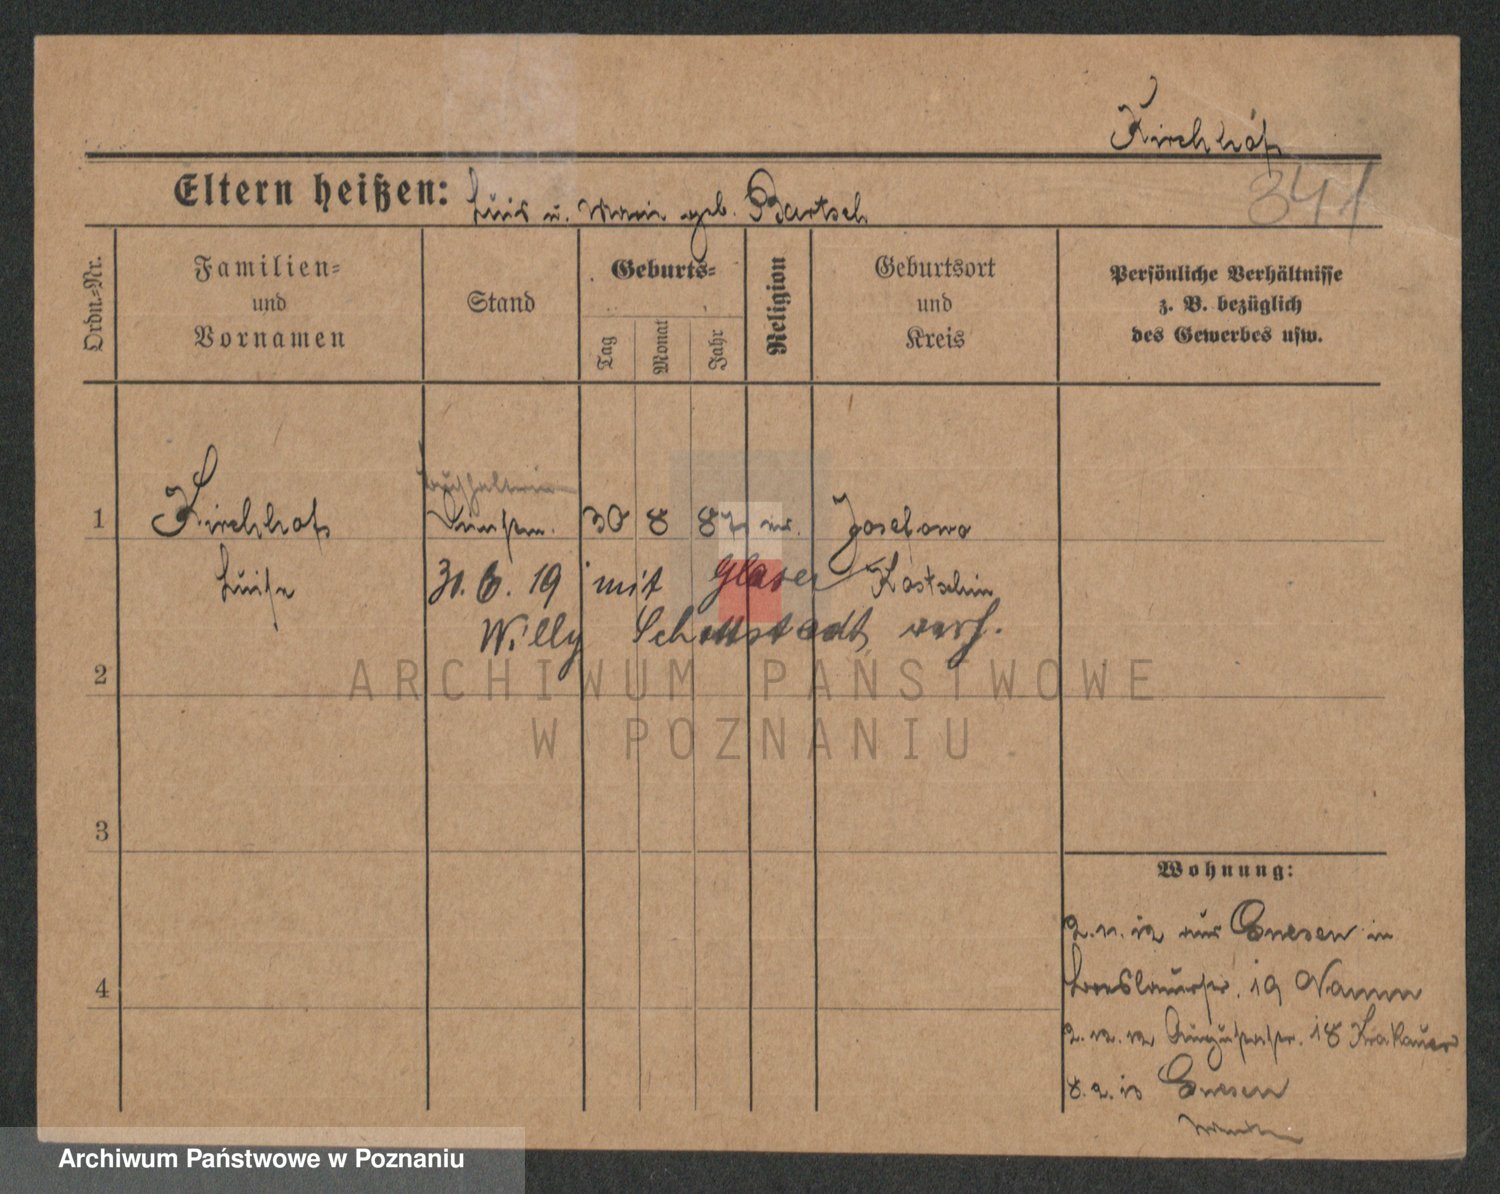 Kirchhof
341
Eltern heißen: Luis u. Marie geb. Bartsch
Ordn.-Nr.
Familien-
und
Vornamen
Stand
Geburts-
Tag
Monat
Jahr
Religion
Geburtsort
und
Kreis
Persönliche Verhältnisse
z. B. bezüglich
des Gewerbes usw.
Buchhalterin
1 Kirchhof 30 8 87 ev. Josefowo
Luise 31. 6. 19 mit Glaser Kostschin
Willy Schottstadt verh.
2
3
4
Wohnung:
2. 11. 12 aus Gnesen in
Breslauerstr. 19
Augustastr. 18 Krakauer
8. 2. 13 Gnesen
ARCHIWUM PAŃSTWOWE
W POZNANIU
Archiwum Państwowe w Poznaniu